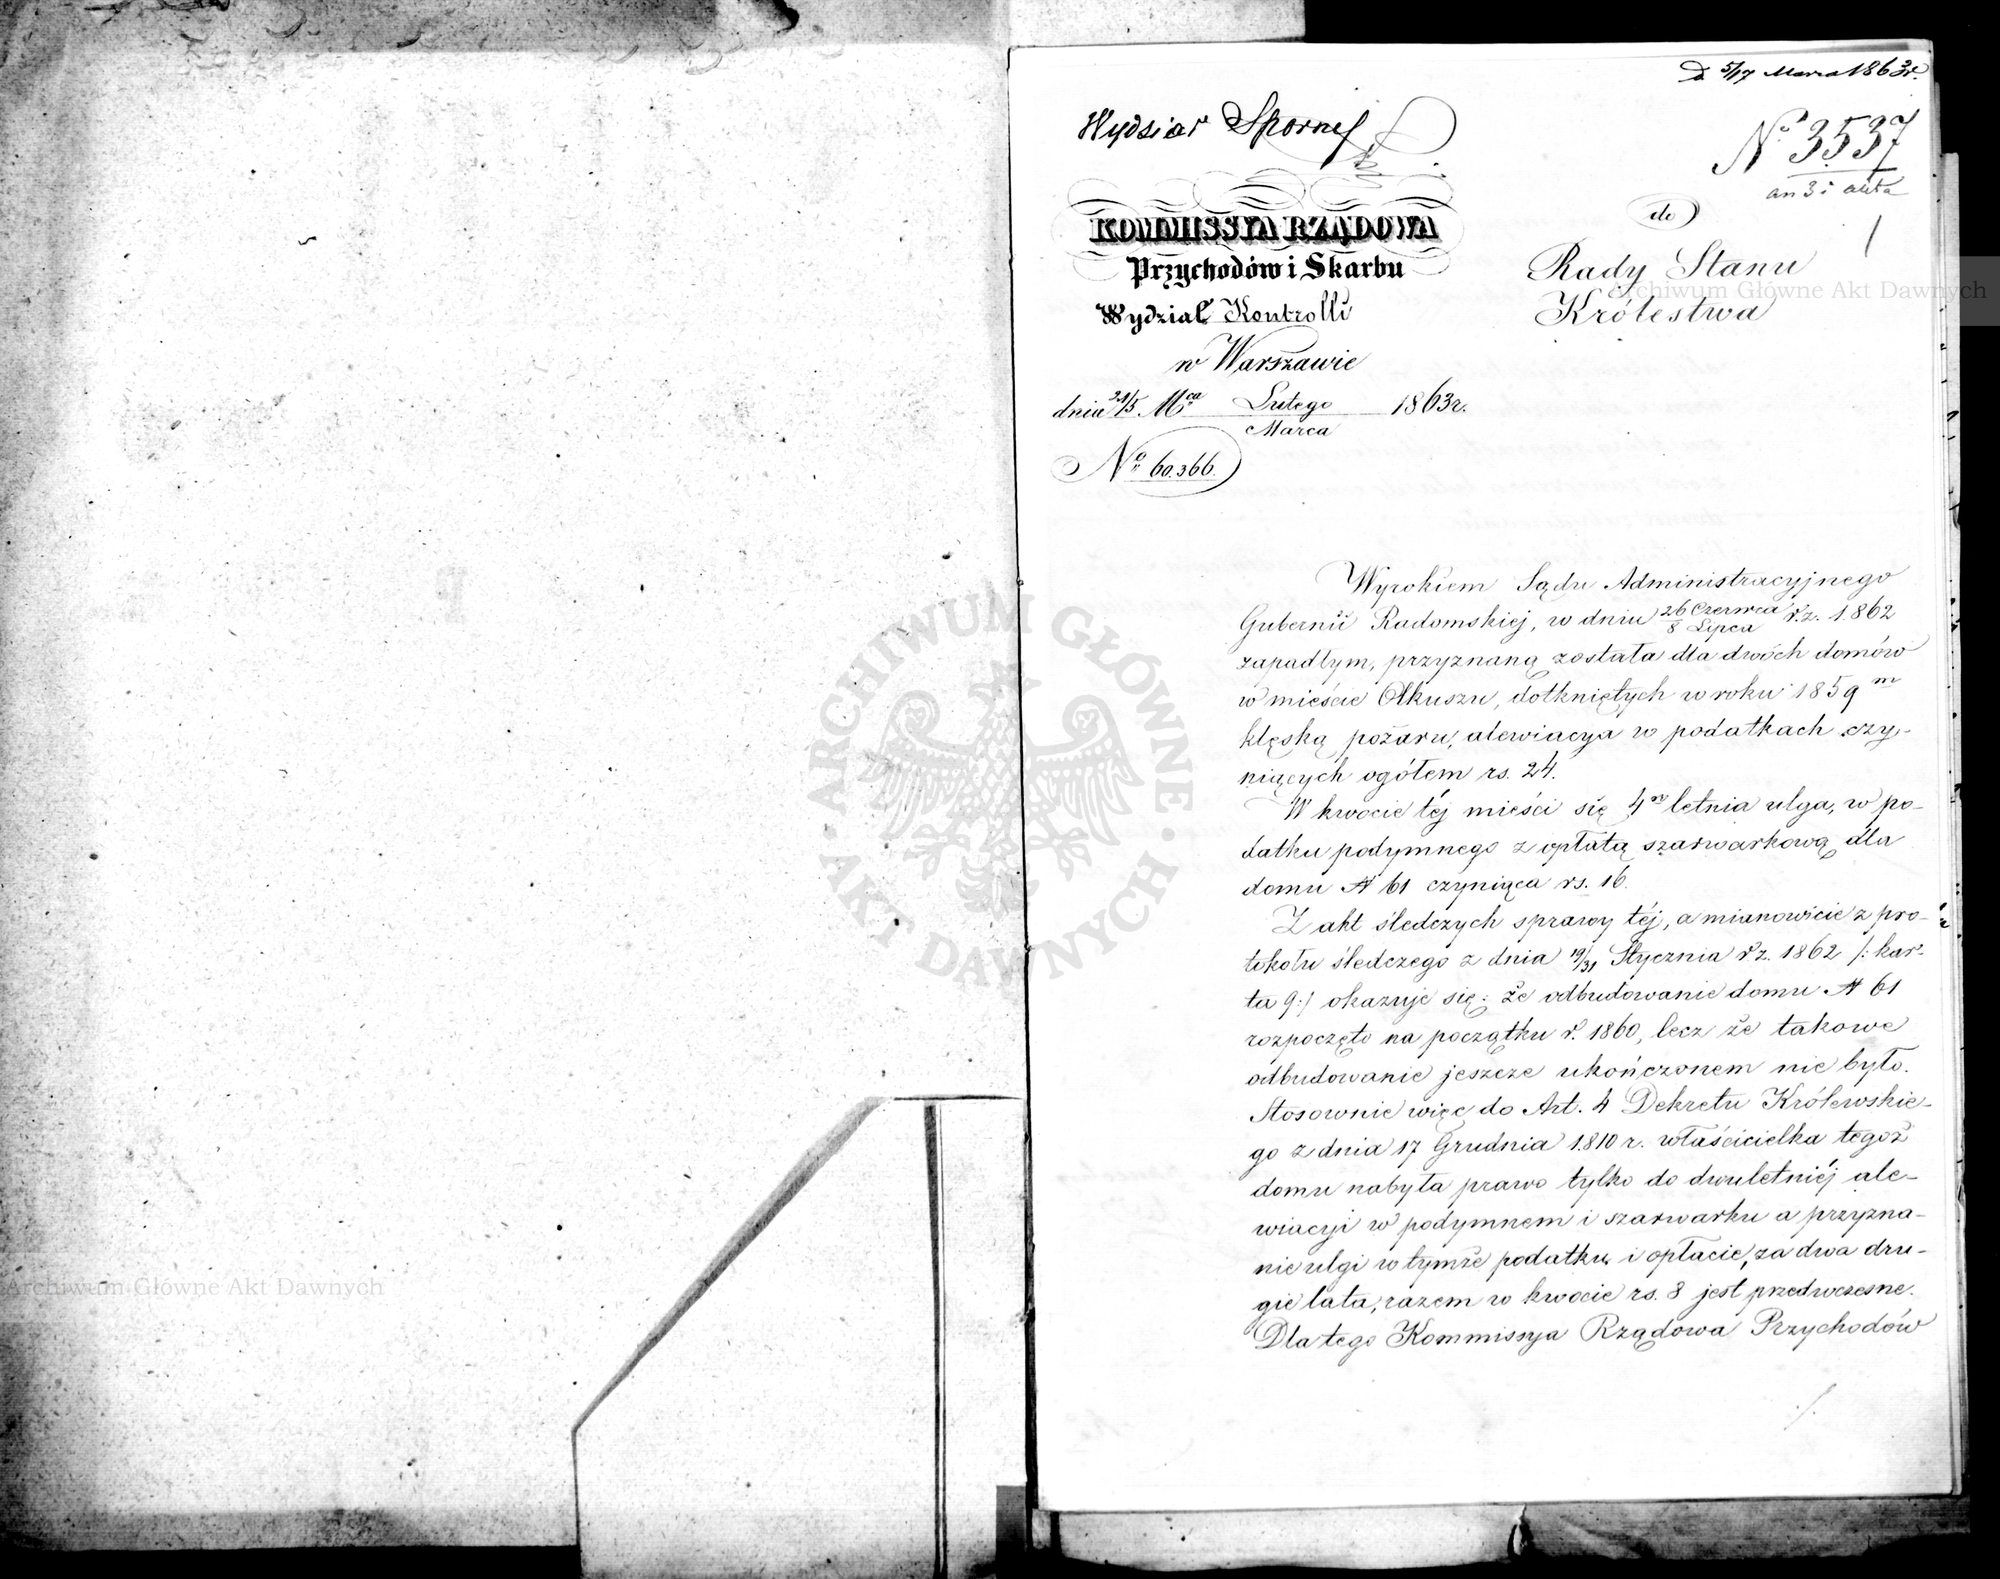 D 5/17 Marca 1863 r.
Wydział Sporny
№ 3537
1
KOMMISSYA RZĄDOWA
Przychodów i Skarbu
Wydział Kontrolli
w Warszawie
dnia 21/5 Mca Lutego/Marca 1863 r.
№ 60.366.
do
Rady Stanu
Królestwa
Wyrokiem Sądu Administracyjnego
Gubernii Radomskiej, w dniu 26 Czerwca/8 Lipca r. z. 1862
zapadłym, przyznaną została dla dwóch domów
w mieście Olkuszu, dotkniętych w roku 1859 m
klęską pożaru, alewiacya w podatkach czy-
niących ogółem rs. 24.
W kwocie téj mieści się 4ro letnia ulga, w po-
datku podymnego z opłatą szarwarkową dla
domu № 61 czyniąca rs. 16.
Z akt śledczych sprawy téj, a mianowicie z pro-
tokołu śledczego z dnia 19/31 Stycznia r. z. 1862 /: kar-
ta 9 :/ okazuje się: że odbudowanie domu № 61
rozpoczęto na początku r. 1860, lecz że takowe
odbudowanie jeszcze ukończonem nie było.
Stosownie więc do Art. 4 Dekretu Królewskie-
go z dnia 17 Grudnia 1810 r. właścicielka tegoż
domu nabyła prawo tylko do dwuletniéj ale-
wiacyi w podymnem i szarwarku a przyzna-
nie ulgi w tymże podatku i opłacie, za dwa dru-
gie lata, razem w kwocie rs. 8 jest przedwczesne.
Dla tego Kommissya Rządowa Przychodów
./.
ARCHIWUM GŁÓWNE AKT DAWNYCH
Archiwum Główne Akt Dawnych
Archiwum Główne Akt Dawnych